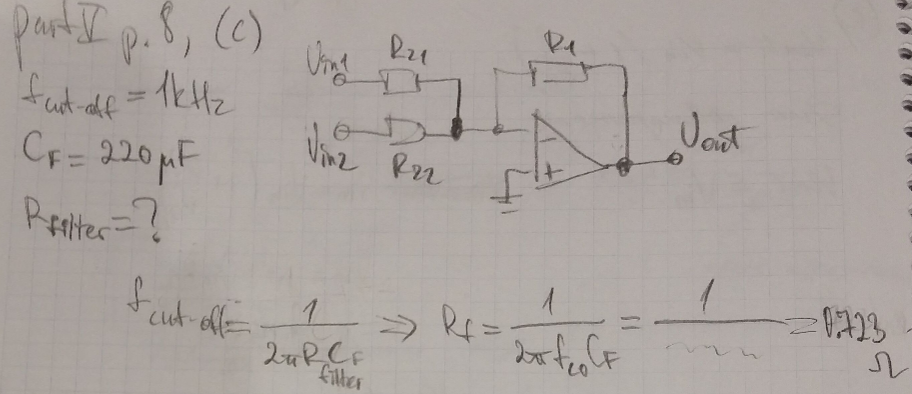 part V p. 8, (c)
f cut-off = 1kHz
C_F = 220 μF
R filter = ?
Vin1
R21
Vin2
R22
R1
-
+
Uout
f cut-off = 1 / (2π R filter C_F) ⇒ R_f = 1 / (2π f_co C_F) = 1 / = 0.723 Ω